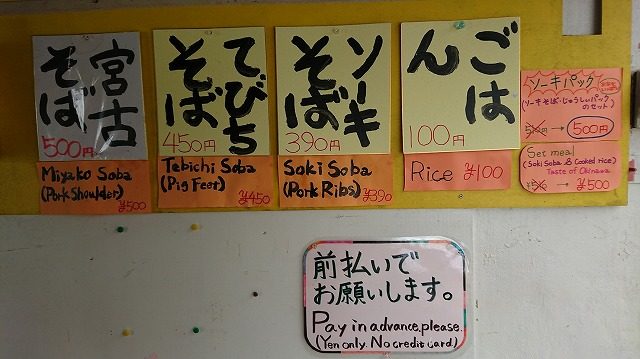 宮古
そば
500円
Miyako Soba
(Pork Shoulder)
¥500
てびち
そば
450円
Tebichi Soba
(Pig Feet)
¥450
ソーキ
そば
390円
Soki Soba
(Pork Ribs)
¥390
ごは
ん
100円
Rice ¥100
ソーキパック
(ソーキそば・じゅうしぃパック
のセット)
→ 500円
Set meal
(Soki Soba & Cooked rice)
Taste of Okinawa
→ ¥500
前払いで
お願いします。
Pay in advance, please.
(Yen only. No credit card)